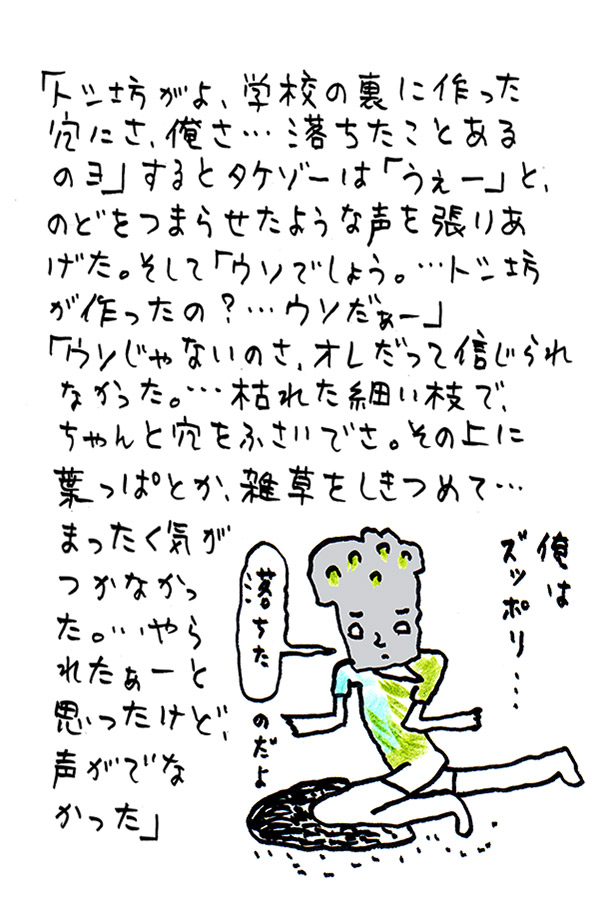 「トン坊がよ、学校の裏に作った
穴にさ、俺さ…落ちたことある
のヨ」するとタケゾーは「うぇー」と、
のどをつまらせたような声を張りあ
げた。そして「ウソでしょう。…トン坊
が作ったの？…ウソだぁー」
「ウソじゃないのさ、オレだって信じられ
なかった。…枯れた細い枝で、
ちゃんと穴をふさいでさ。その上に
葉っぱとか、雑草をしきつめて…
まったく気が
つかなかっ
た。…やら
れたぁーと
思ったけど、
声がでな
かった」
俺は
ズッポリ…
落ちた
のだよ